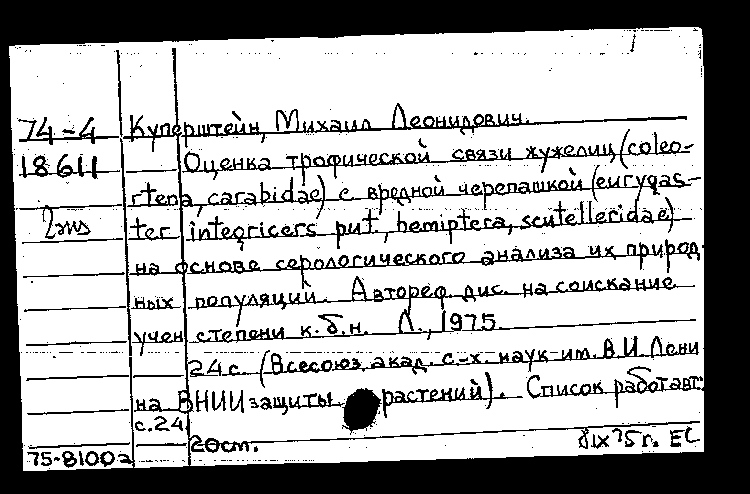 74-4 Куперштейн, Михаил Леонидович.
18611 Оценка трофической связи жужелиц (coleo-
ptera, carabidae) с вредной черепашкой (eurygas-
2экз ter integricers put, hemiptera, scutelleridae)
на основе серологического анализа их природ-
ных популяций. Автореф. дис. на соискание
учен степени к.б.н. Л., 1975
24 с. (Всесоюз. акад. с.-х. наук им. В.И. Лени
на ВНИИ защиты растений). Список работ авт:
с.24
20см.
75-8100а IX 75 г. ЕС